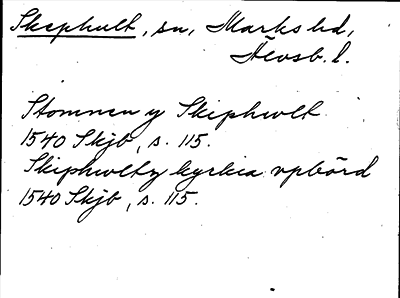 Skephult, sn, Marks hd,
Älvsb. l.
Stomnen y Skiphwlt
1540 Skjb, s. 115.
Skiphwltz kyrkia vpbörd
1540 Skjb, s. 115.